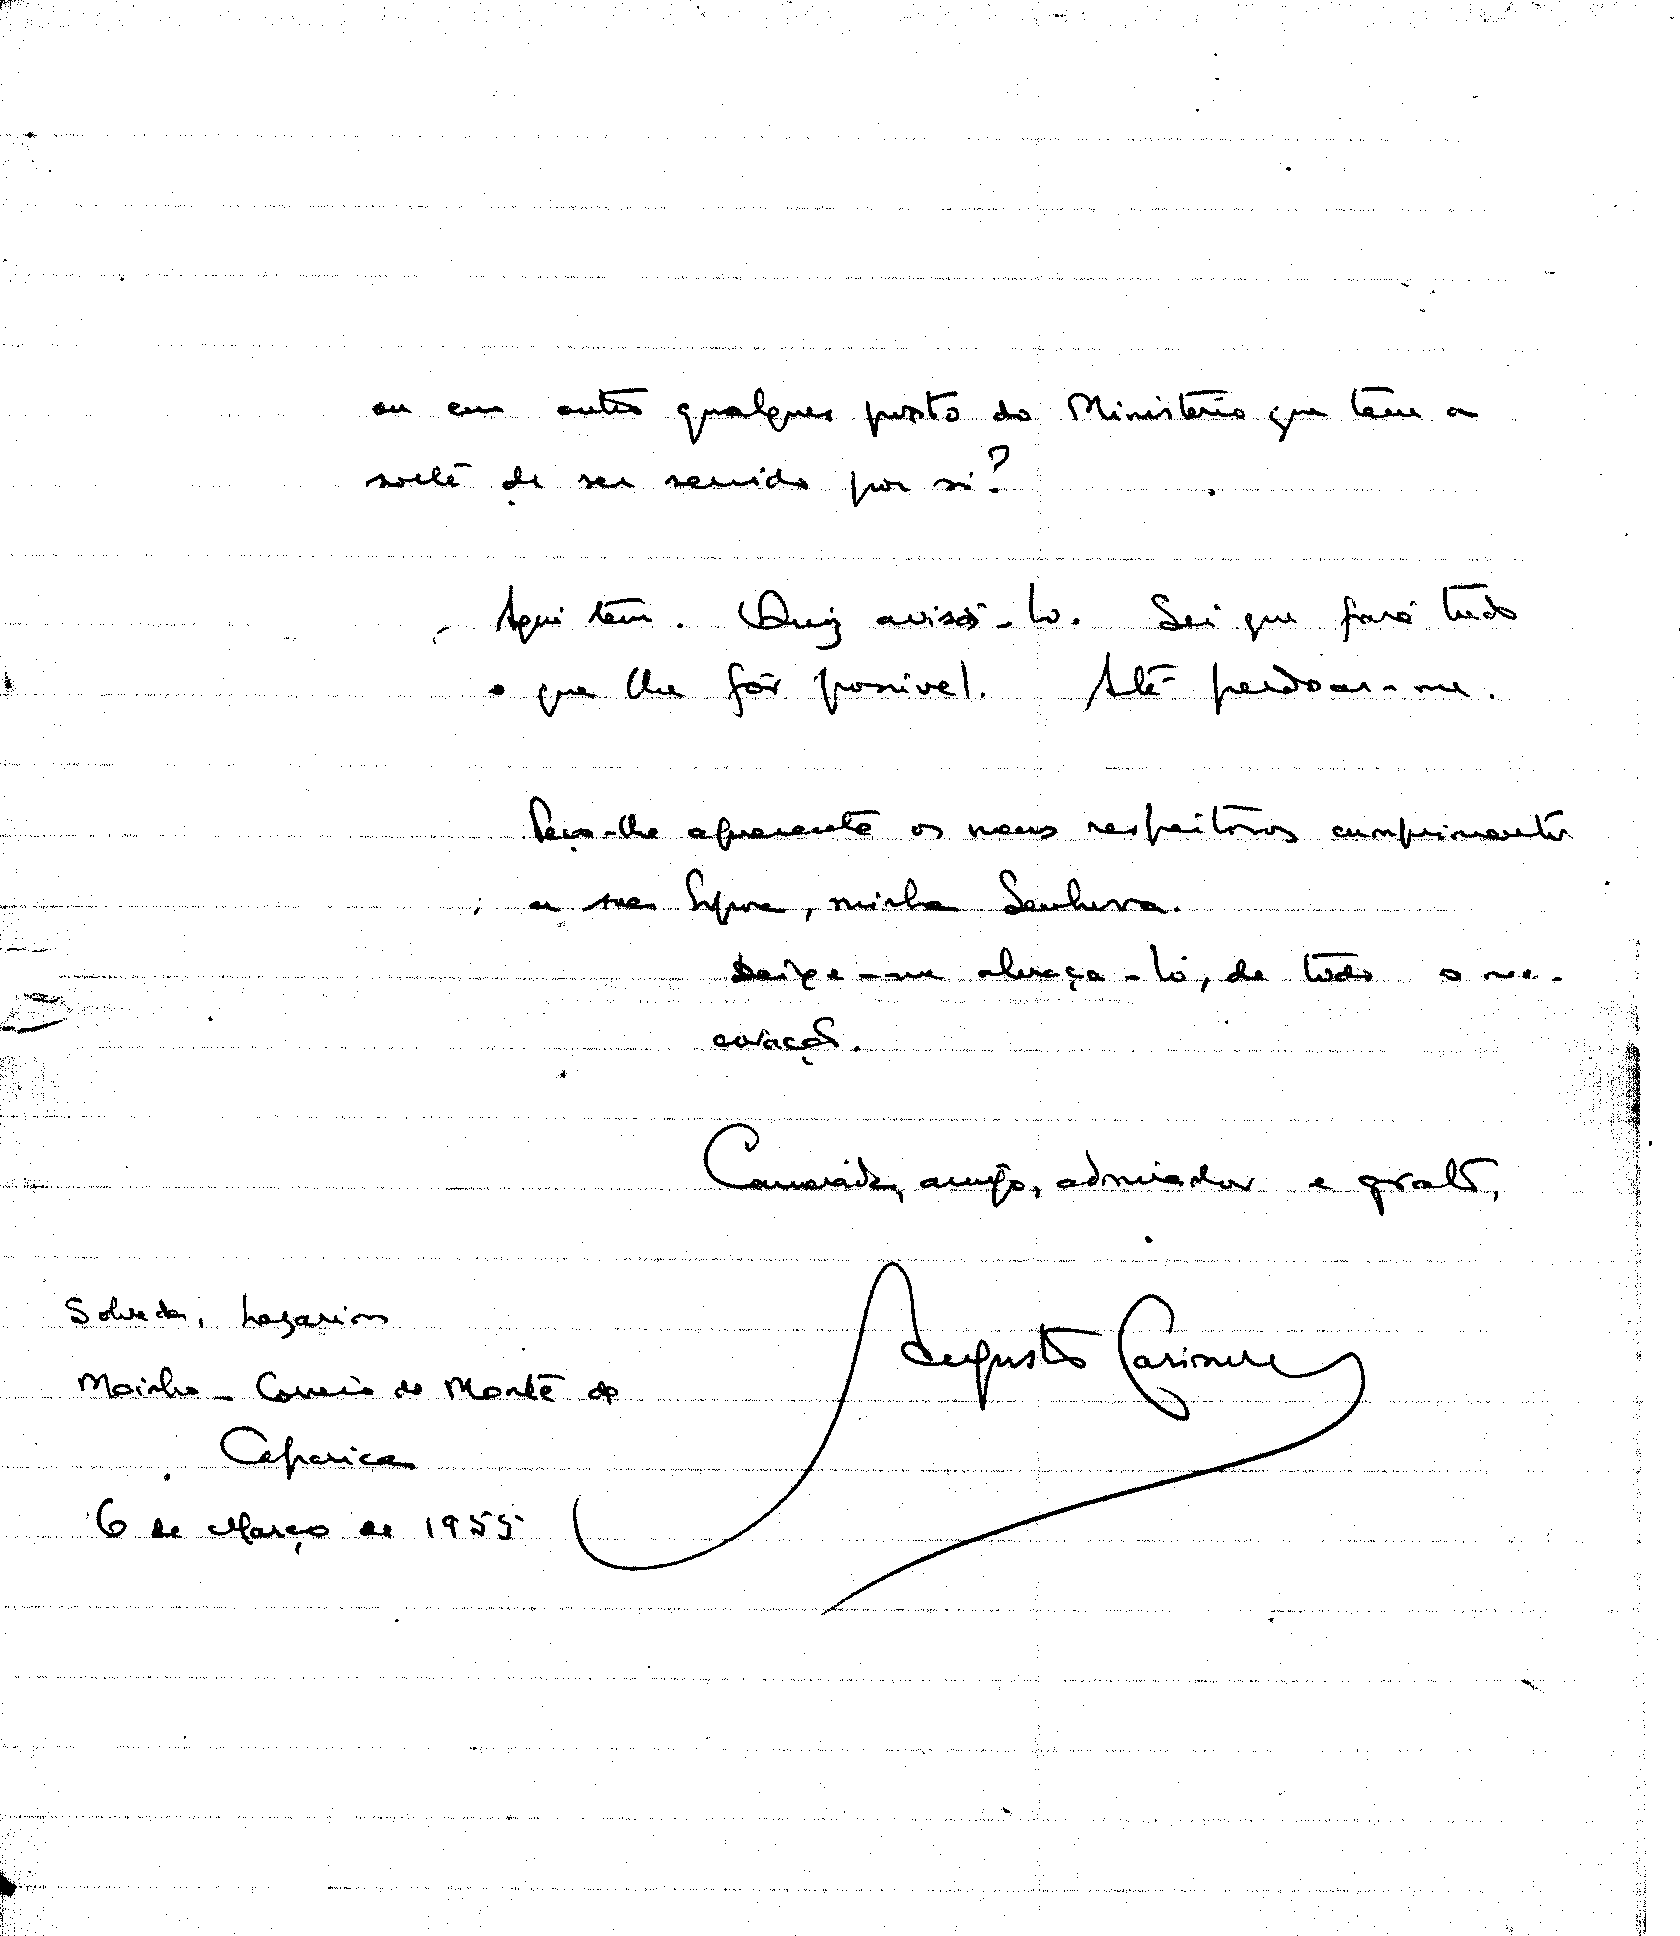 ou em outro qualquer posto do Ministério que tem a
sorte de ser servido por si?
Aqui tem. Quiz avisá-lo. Sei que fará tudo
o que lhe fôr possivel. Até perdoar-me.
Peço-lhe apresente os meus respeitosos cumprimentos
a sua Espoza, minha Senhora.
Deixe-me abraça-lo, de todo o meu
coração.
Camarada, amigo, admirador e grato,
Augusto Casimiro
Sobreda, Lazarim
Moinho - Correio do Monte de
Caparica
6 de Março de 1955